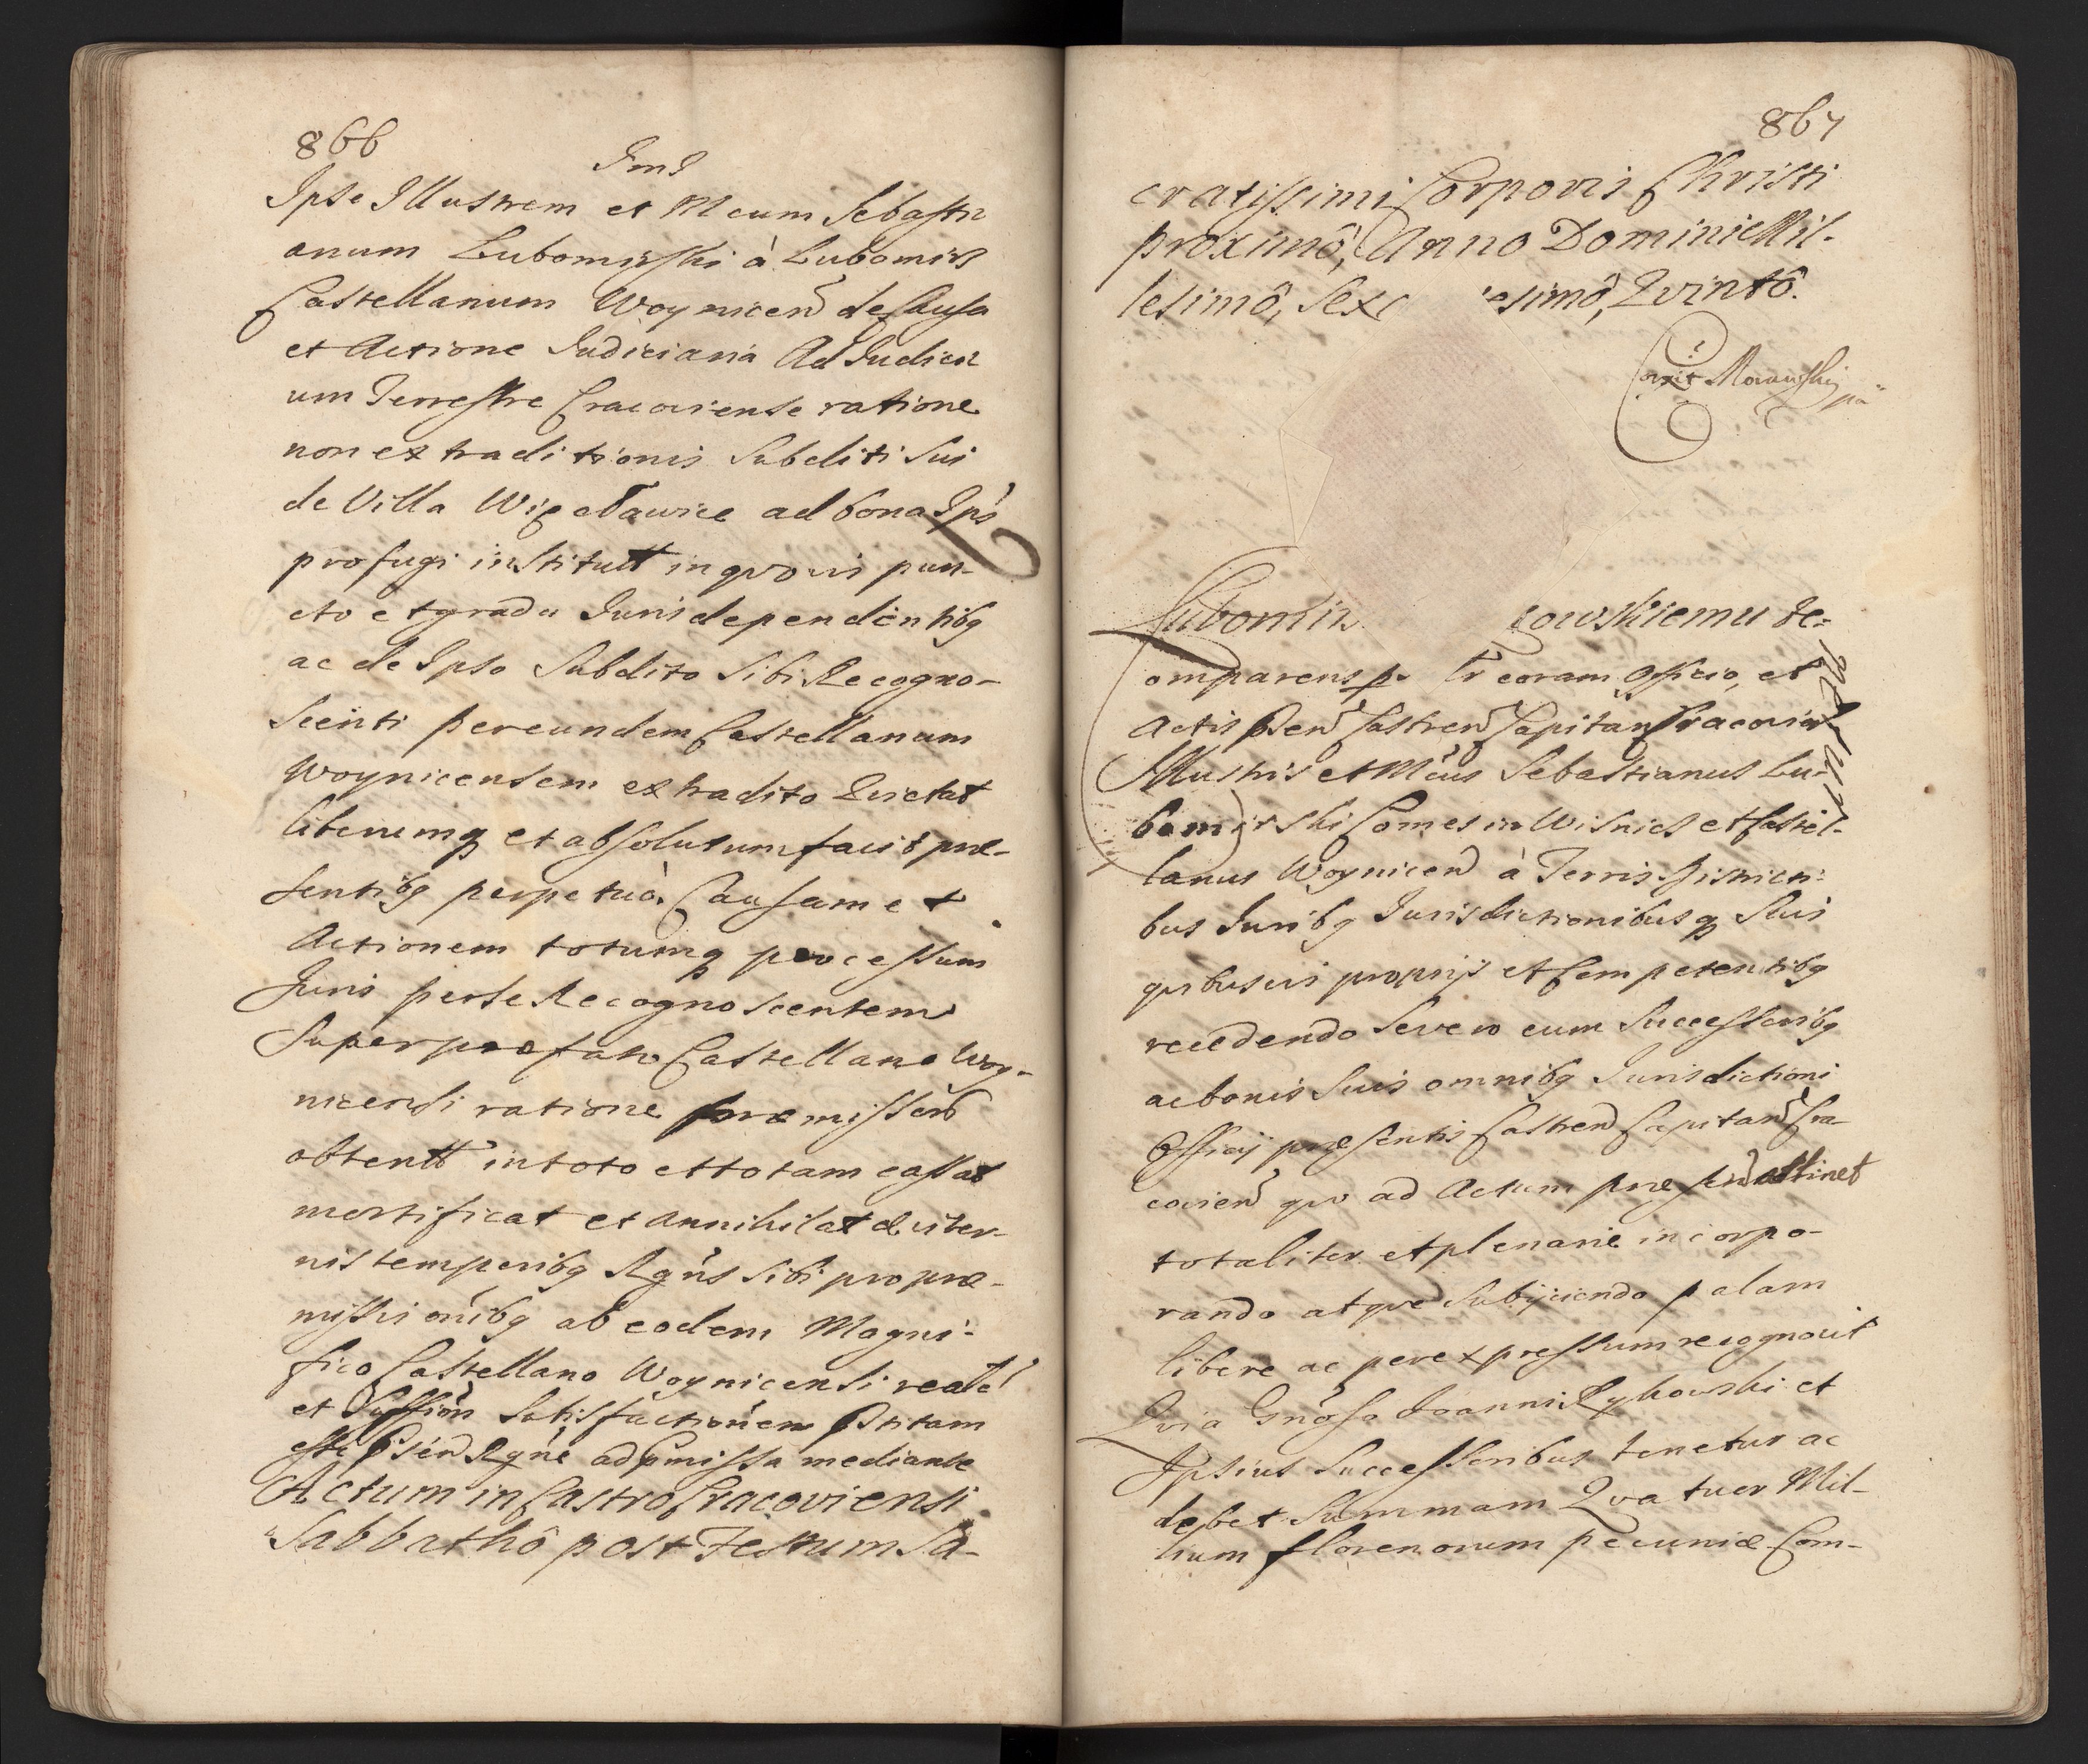 866
Ipse Illustrem et Mcum Sebasti
anum Lubomirski à Lubomirz
Castellanum Woynicen de Causa
et Actione Iudiciaria Ad Iudici
um Terrestre Cracoviense ratione
non extraditionis Subditi Sui
de Villa ad bona Ips
profugi institutt in quovis pun-
cto et gradu Iuris dependentibq
ac de Ipso Subdito Sibi Recogno-
scenti per eundem Castellanum
Woynicensem extradito Quietat
liberumq et absolutum facit præ-
sentibq perpetuò. Causam et
Actionem totumq processum
Iuris per se Recognoscentem
Super præfato Castellano Woy-
nicensi ratione præmissoru
obtentt in toto et totam cassat
mortificat et annihilat æviter-
nis temporibq Rgns Sibi pro præ-
missis onibq ab eodem Magni-
fico Castellano Woynicensi reale
et Satisfactionem Pstitam
esse Psen Rgne ad pmissa mediante
Actum in Castro Cracoviensi
Sabbathô post Festum Sa-
867
cratissimi Corporis Christi
proximô, Anno Domini Mil-
lesimô, Sexc esimô, Qvintô.
Lubomir owskiemu re-
omparens p. tr coram Officio, et
Actis Psen Castren Capitan Cracovien
Illustris et Mcus Sebastianus Lu-
bomirski Comes in Wisnicz et Castel-
lanus Woynicen à Terris Districti-
bus Iuribq Iurisdictionibusq Suis
quibusvis proprijs et Competentibq
recedendo Se vero cum Successoribq
ac bonis Suis omnibq Iurisdictioni
Officij præsentis Castren Capitan Cra-
covien quo ad Actum præsen attinet
totaliter et plenarie incorpo-
rando atque Subijciendo palam
libere ac per expressum recognovit
Qvia Gnoso Ioanni Rykowski et
Ipsius Successoribus tenetur ac
debet Summam Qvatuor Mil-
lium florenorum pecuniæ Com-